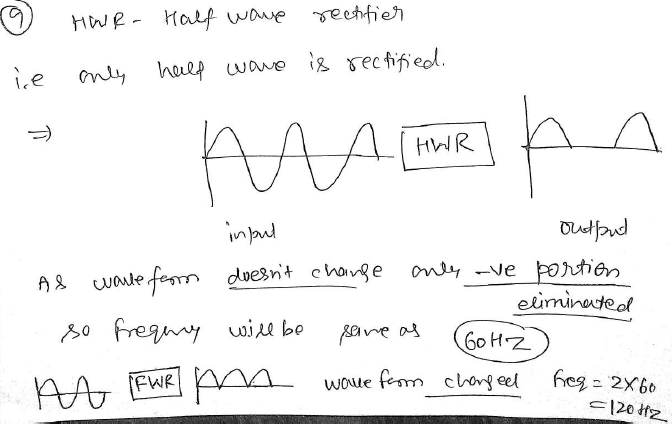 9 HWR - Half wave rectifier
i.e only half wave is rectified.
⇒ HWR
input output
As waveform doesn't change only -ve portion
eliminated
so freqeny will be same as 60HZ
FWR wave form changed freq = 2X60
= 120 Hz